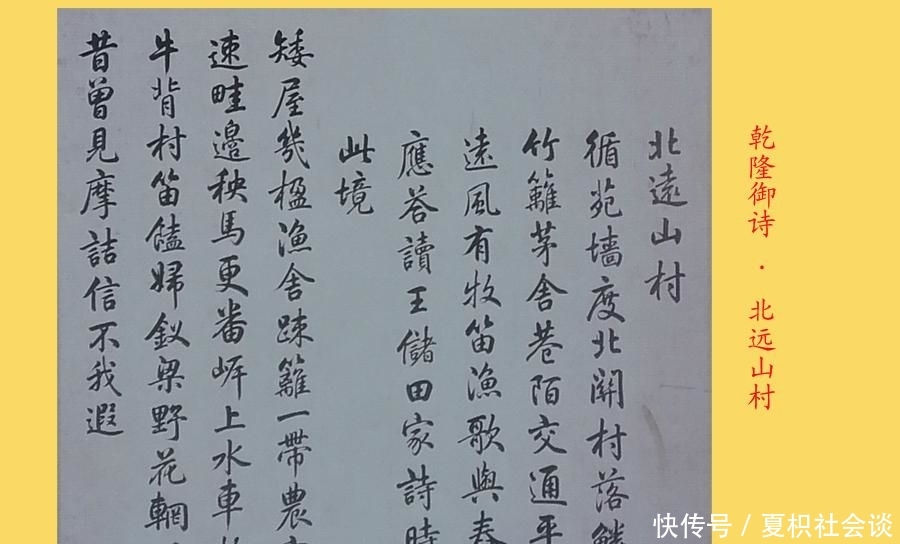 乾隆御诗 · 北远山村
北遠山村
循苑墻度北關村落鱗
竹籬茅舍巷陌交通平
遠風有牧笛漁歌與舂
應荅讀王儲田家詩時
此境
矮屋幾楹漁舍踈籬一帶農
速畦邊秧馬更番岸上水車
牛背村笛饁婦釵梁野花輞
昔曾見摩詰信不我遐
快传号 / 夏枳社会谈